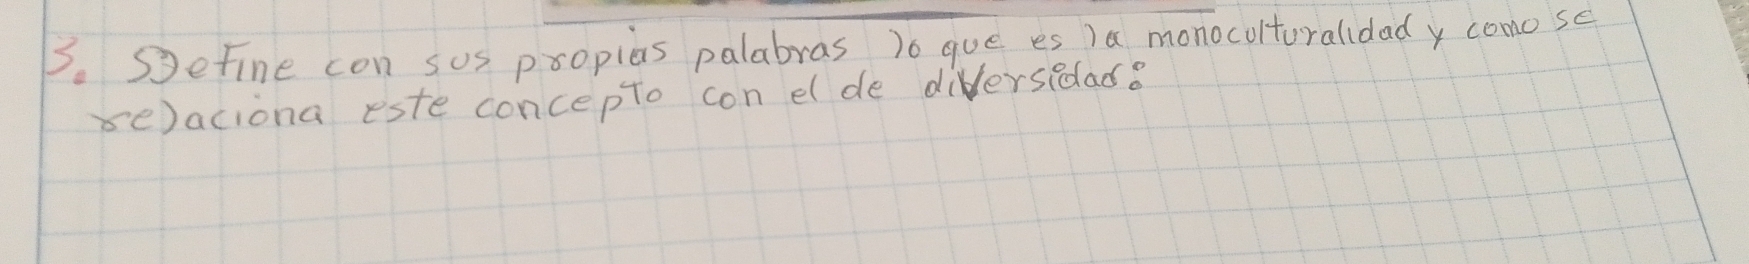 3. Define con sus propias palabras lo que es la monoculturalidad y como se
relaciona este concepto con el de diversidad: